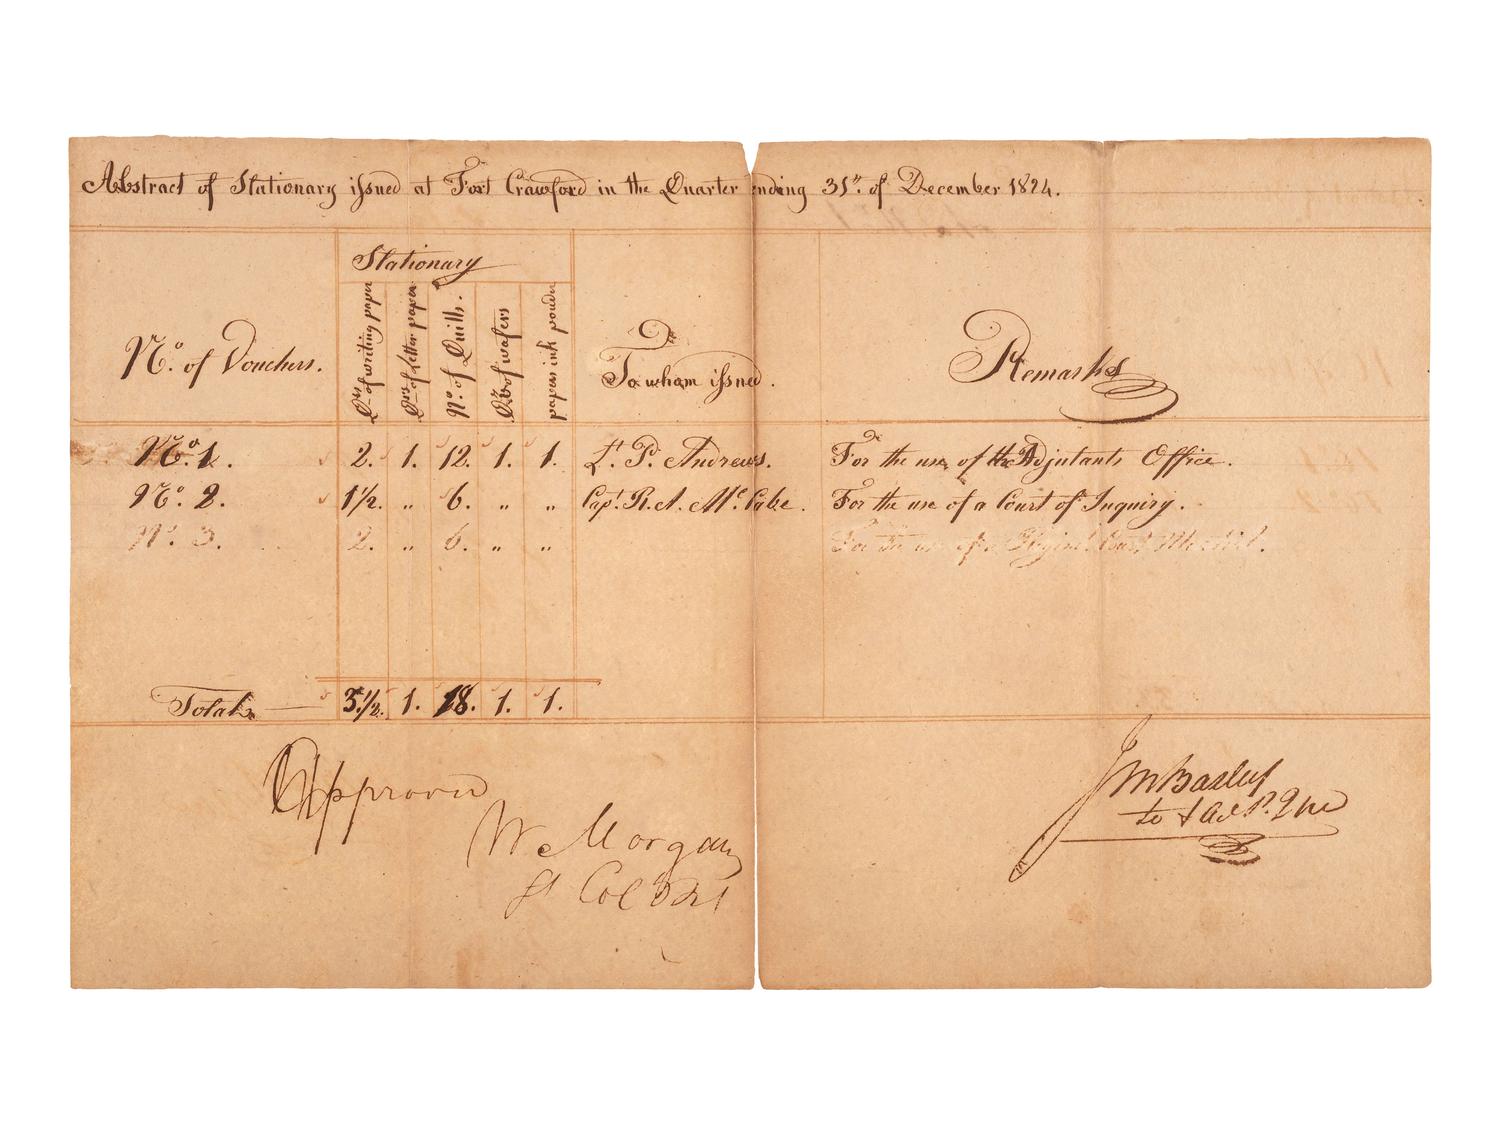 Abstract of Stationary issued at Fort Crawford in the Quarter ending 31st. of December 1824.
No. of Vouchers.
Stationary
Qrs. of writing paper
Qrs. of Letter paper
No. of Quills.
Oz. of wafers
papers ink powder
To wham issued.
Remarks
No. 1. 2. 1. 12. 1. 1. Lt. P. Andrews. For the use of the Adjutants Office.
No. 2. 1 1/2. " 6. " " Capt. R. A. McCabe. For the use of a Court of Inquiry.
No. 3. 2. " 6. " " For the use of a Regiml. Court Martial.
Total 3. 1/2. 1. 18. 1. 1.
Approved
W Morgan
Lt Col
J M Baxley
Lt & Act.